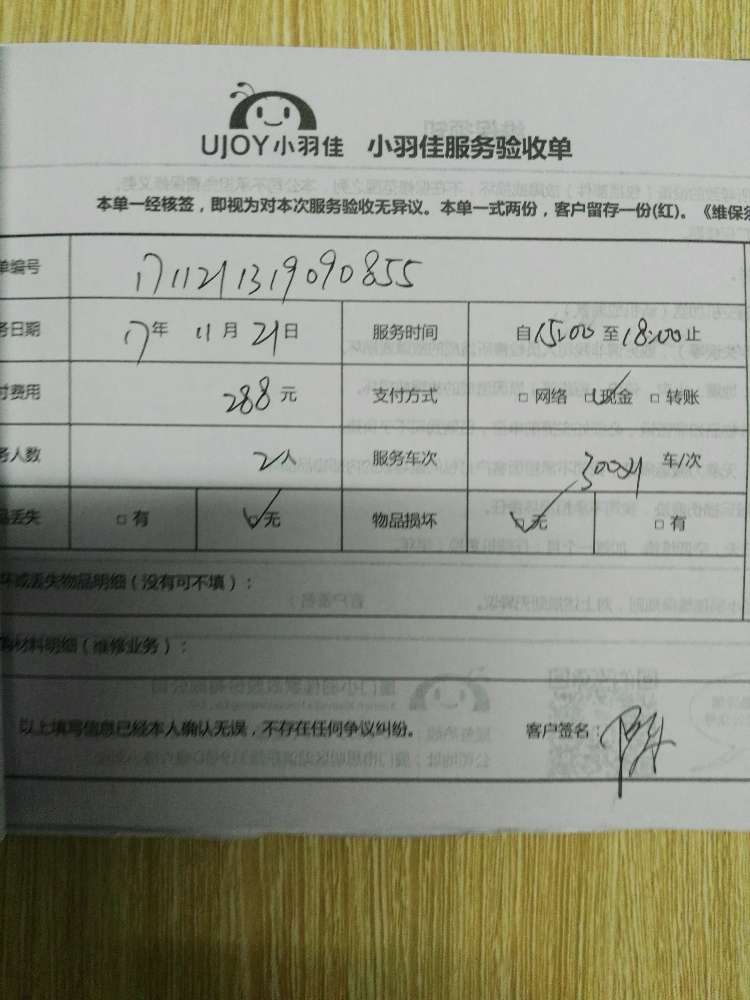 UJOY小羽佳 小羽佳服务验收单
本单一经核签，即视为对本次服务验收无异议。本单一式两份，客户留存一份(红)。《维保须
单编号 171121319090855
务日期 17年 11月 21日 服务时间 自15:00至18:00止
付费用 288元 支付方式 □ 网络 □ 现金 □ 转账
务人数 2人 服务车次 车/次
品丢失 □ 有 □ 无 物品损坏 □ 无 □ 有
坏或丢失物品明细（没有可不填）：
材料明细（维修业务）：
以上填写信息已经本人确认无误，不存在任何争议纠纷。 客户签名：